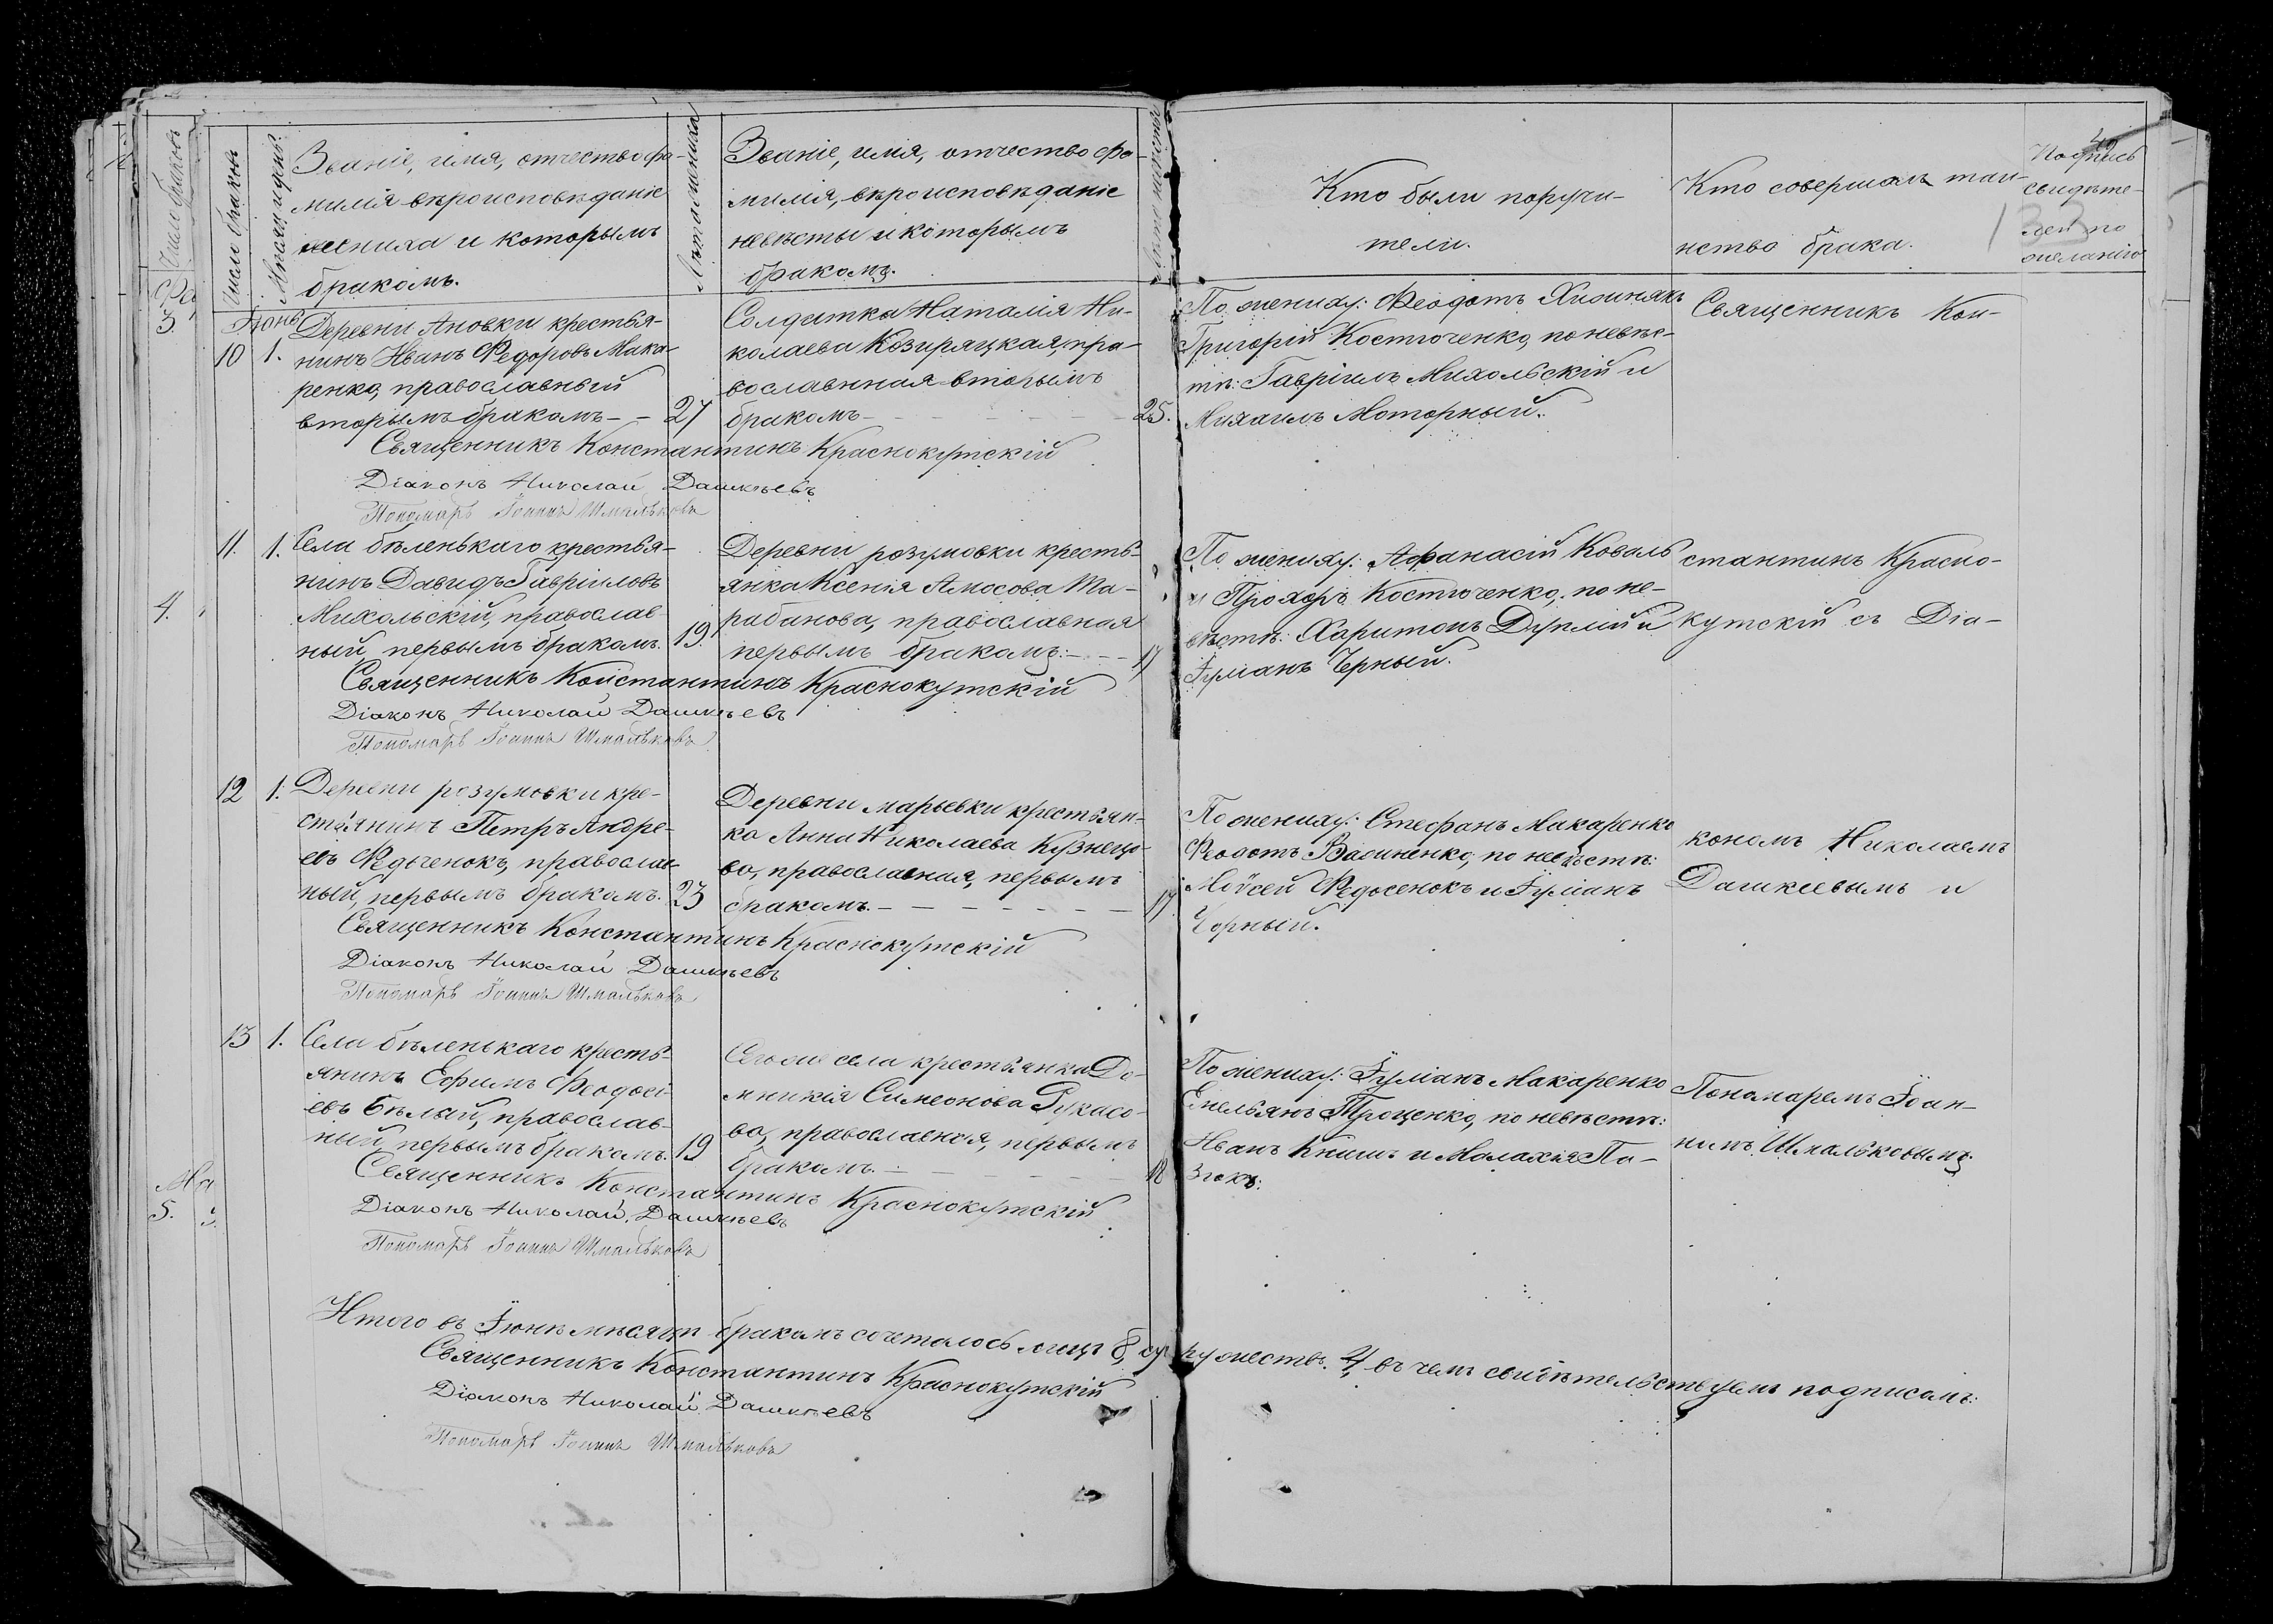 Число браковъ
Мѣсяцъ и день
Званіе, имя, отчество фа-
милія вѣроисповѣданіе
жениха и которымъ
бракомъ.
Лѣта жениха
Званіе, имя, отчество фа-
милія, вѣроисповѣданіе
невѣсты и которымъ
бракомъ.
Лѣта невѣсты
Кто были поручи-
тели.
Кто совершалъ таи-
нство брака.
Подпись
свидѣте-
лей по
желанію
133
Іюнь
10 1. Деревни Ановки крестья-
нинъ Иванъ Федоровъ Мака-
ренко, православный
вторымъ бракомъ - - 27
Солдатка Наталія Ни-
колаева Козиряцкая, пра-
вославнная вторымъ
бракомъ - 25.
По жениху: Феодотъ Хижнякъ
Григорій Костюченко, по невѣс-
тѣ: Гавріилъ Михольскій и
Михаилъ Моторный.
Священникъ Кон-
Священникъ Константинъ Краснокутскій
Діаконъ Николай Дашкѣевъ
Пономарь Іоаннъ Шмальковъ
11. 1. Села бѣленькаго крестья-
нинъ Давидъ Гавріиловъ
Михольскій, православ-
ный первымъ бракомъ. 19.
Деревни розумовки кресть-
янка Ксенія Амосова Та-
рабанова, православная
первымъ бракомъ: - - - 17
По жениху: Афанасій Коваль
и Прохоръ Костюченко, по не-
вѣстѣ: Харитонъ Дуплій и
Іуліанъ Черный.
стантинъ Красно-
кутскій съ Діа-
Священникъ Константинъ Краснокутскій
Діаконъ Николай Дашкѣевъ
Пономарь Іоаннъ Шмальковъ
12 1. Деревни розумовки кре-
стьянинъ Петръ Андре-
евъ Федченокъ, православ-
ный, первымъ бракомъ. 23
Деревни марьевки крестьян-
ка Анна Николаева Кузнецо-
ва, православная, первымъ
бракомъ. - - - - - - - 17
По жениху: Стефанъ Макаренко
Феодотъ Васиненко, по невѣстѣ:
Моѵсей Федосенокъ и Іуліанъ
Чорный.
кономъ Николаемъ
Дашкеевымъ и
Священникъ Константинъ Краснокутскій
Діаконъ Николай Дашкѣевъ
Пономарь Іоаннъ Шмальковъ
13 1. Села бѣленькаго кресть-
янинъ Ефимъ Феодосі-
евъ Бѣлый, православ-
ный первымъ бракомъ. 19
Сего же села крестьянка До-
мникія Симеонова Рукасо-
ва, православная, первымъ
бракомъ. - - - - 18
По жениху: Іуліанъ Макаренко
Емельянъ Троценко, по невѣстѣ:
Иванъ Книшъ и Малахія Па-
зюкъ:
Пономаремъ Іоан-
номъ Шмальковымъ
Священникъ Константинъ Краснокутскій
Діаконъ Николай Дашкѣевъ
Пономарь Іоаннъ Шмальковъ
Итого въ Іюнѣ мѣсяцѣ бракомъ сочеталось лицъ 8, супружествъ 4 въ чемъ свидѣтельствуемъ подписомъ:
Священникъ Константинъ Краснокутскій
Діаконъ Николай Дашкѣевъ
Пономарь Іоаннъ Шмальковъ